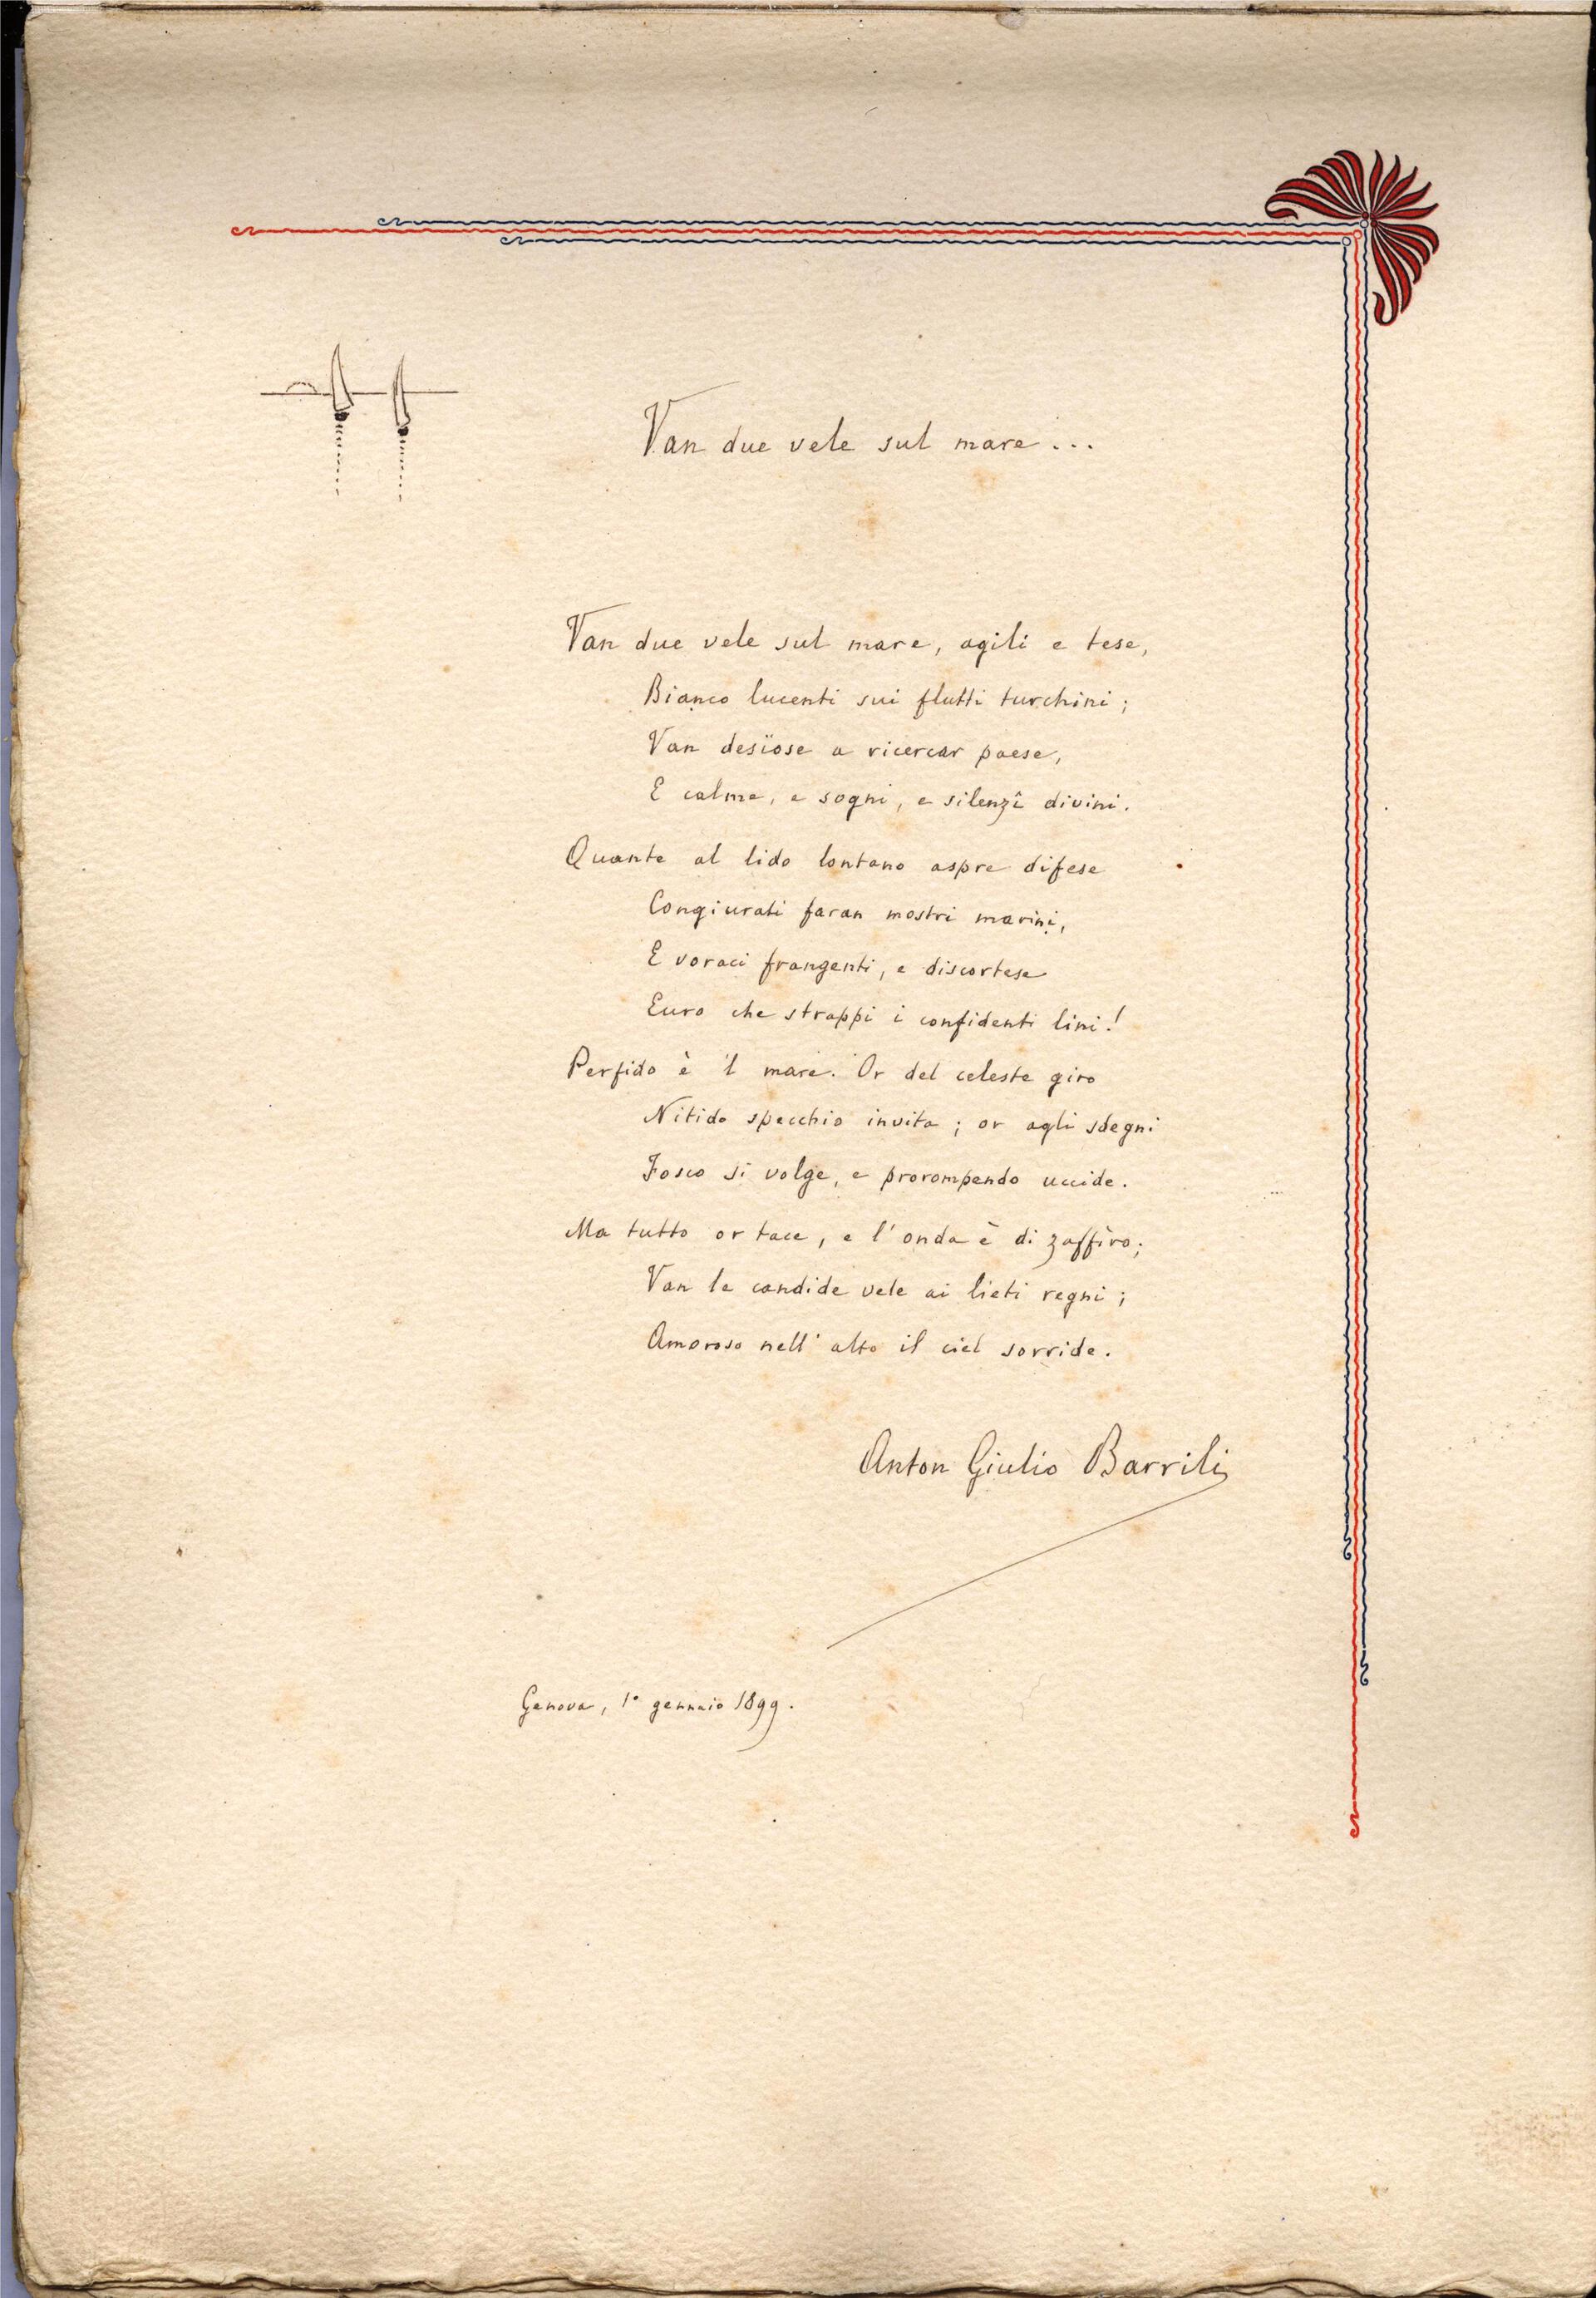 Van due vele sul mare...
Van due vele sul mare, agili e tese,
Bianco lucenti sui flutti turchini;
Van desïose a ricercar paese,
E calma, e sogni, e silenzî divini.
Quante al lido lontano aspre difese
Congiurati faran mostri marini,
E voraci frangenti, e discortese
Euro che strappi i confidenti lini!
Perfido è 'l mare. Or del celeste giro
Nitido specchio invita; or agli sdegni
Fosco si volge, e prorompendo uccide.
Ma tutto or tace, e l'onda è di zaffiro;
Van le candide vele ai lieti regni;
Amoroso nell'alto il ciel sorride.
Anton Giulio Barrili
Genova, 1° gennaio 1899.